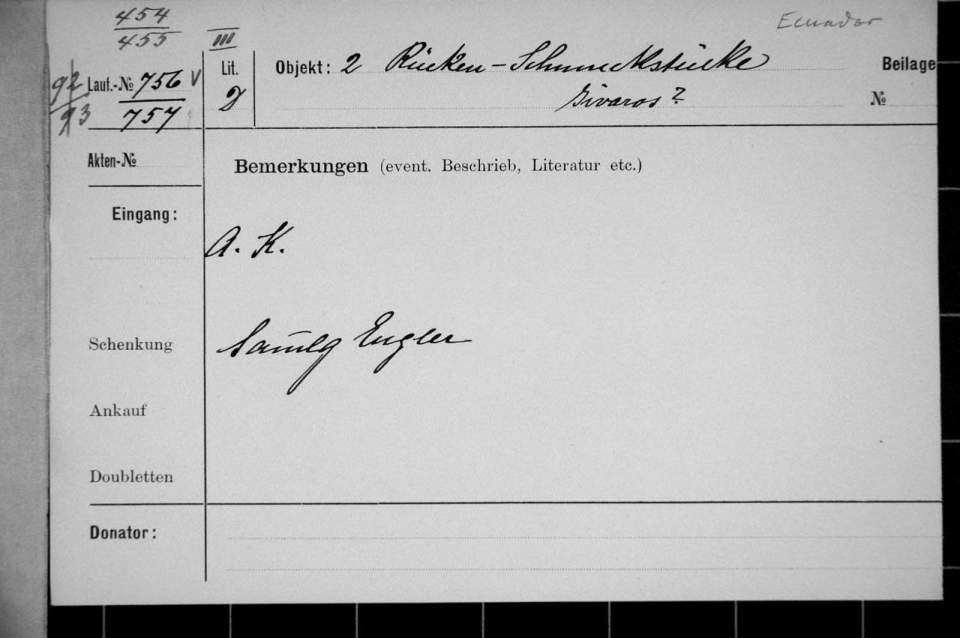 454
455
III
Ecuador
92
93
Lauf.-№ 756 V
757
Lit.
D
Objekt: 2 Rücken-Schmuckstücke
Jivaros?
Beilage
№
Akten-№
Bemerkungen (event. Beschrieb, Literatur etc.)
Eingang:
A. K.
Schenkung
Samlg Engler
Ankauf
Doubletten
Donator: